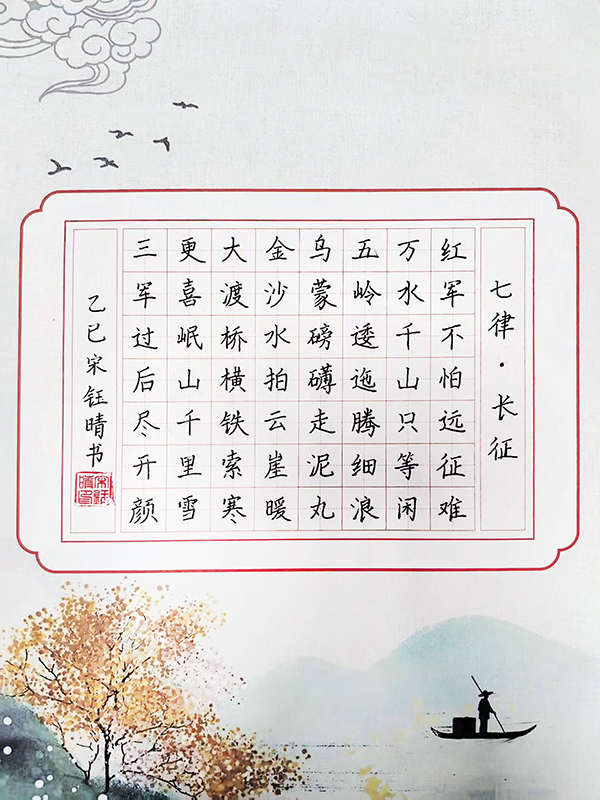 七律·长征
红军不怕远征难
万水千山只等闲
五岭逶迤腾细浪
乌蒙磅礴走泥丸
金沙水拍云崖暖
大渡桥横铁索寒
更喜岷山千里雪
三军过后尽开颜
乙巳宋钰晴书
宋钰晴印